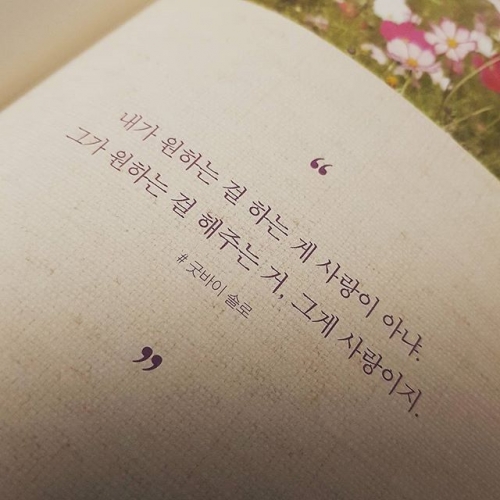 “
내가 원하는 걸 하는 게 사랑이 아냐.
그가 원하는 걸 해주는 거, 그게 사랑이지.
# 굿바이 솔로
”